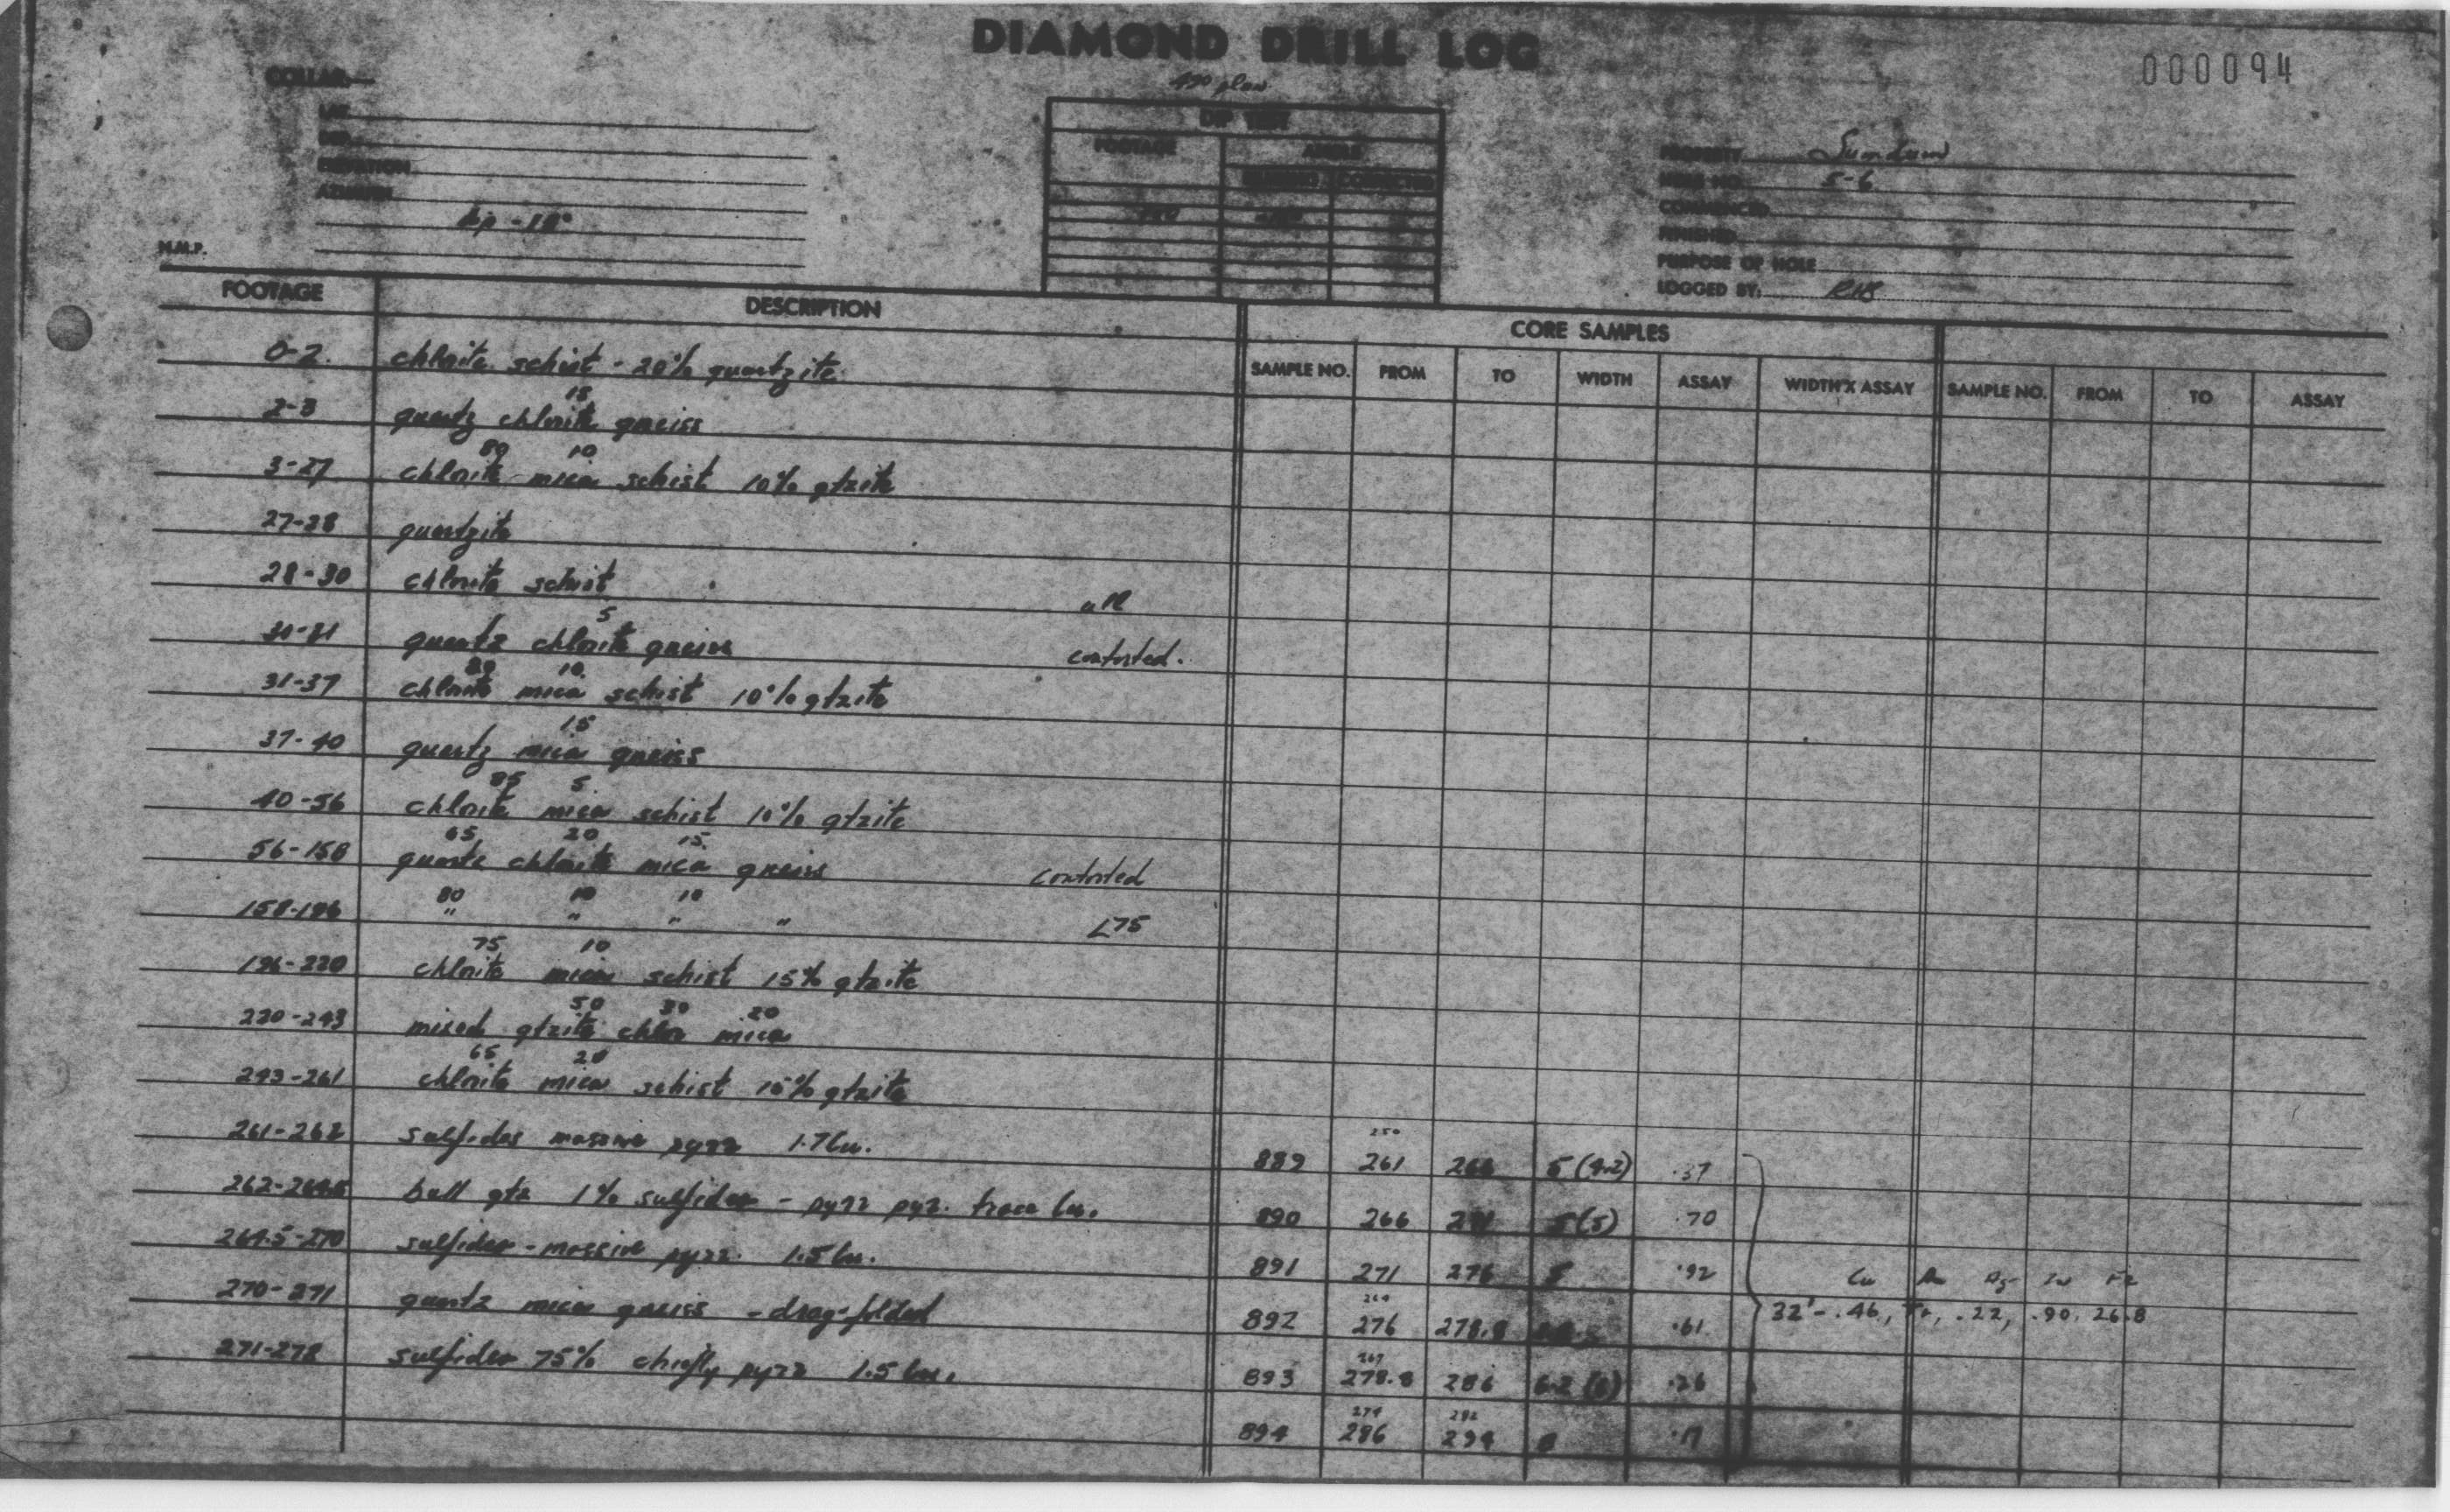 DIAMOND DRILL LOG
000094
COLLAR—
LAT.
DEP.
ELEVATION
AZIMUTH
dip -18°
M.M.P.
490 plan
DIP TEST
FOOTAGE ANGLE
READING CORRECTED
PROPERTY Sumdum
HOLE NO. S-6
COMMENCED
FINISHED
PURPOSE OF HOLE
LOGGED BY:
FOOTAGE DESCRIPTION
CORE SAMPLES
SAMPLE NO. FROM TO WIDTH ASSAY WIDTH X ASSAY SAMPLE NO. FROM TO ASSAY
0-2 chlorite schist - 20% quartzite
15
2-3 quartz chlorite gneiss
80 10
3-27 chlorite mica schist 10% qtzite
27-28 quartzite
28-30 chlorite schist
all
5
30-31 quartz chlorite gneiss contorted.
80 10
31-37 chlorite mica schist 10% qtzite
15
37-40 quartz mica gneiss
85 5
40-56 chlorite mica schist 10% qtzite
65 20 15
56-158 quartz chlorite mica gneiss contorted
80 10 10
158-196 " " " " ∠75
75 10
196-220 chlorite mica schist 15% qtzite
50 30 20
220-243 mixed qtzite chlor mica
65 20
243-261 chlorite mica schist 15% qtzite
261-262 sulfides massive pyrr 1.7 Cu.
250
889 261 266 5 (4.2) .37
262-264.5 bull qtz 1% sulfides - pyrr pyr. trace Cu.
890 266 271 5 (5) .70
264.5-270 sulfides - massive pyrr. 1.5 Cu.
891 271 276 5 .92
Cu Au Ag Zn Fe
270-271 quartz mica gneiss - drag-folded
264
892 276 278.8 .61
32' - .46, Tr, .22, .90, 26.8
271-278 sulfides 75% chiefly pyrr 1.5 Cu.
267
893 278.8 286 6.2 (6) .26
274 282
894 286 294 8 .17